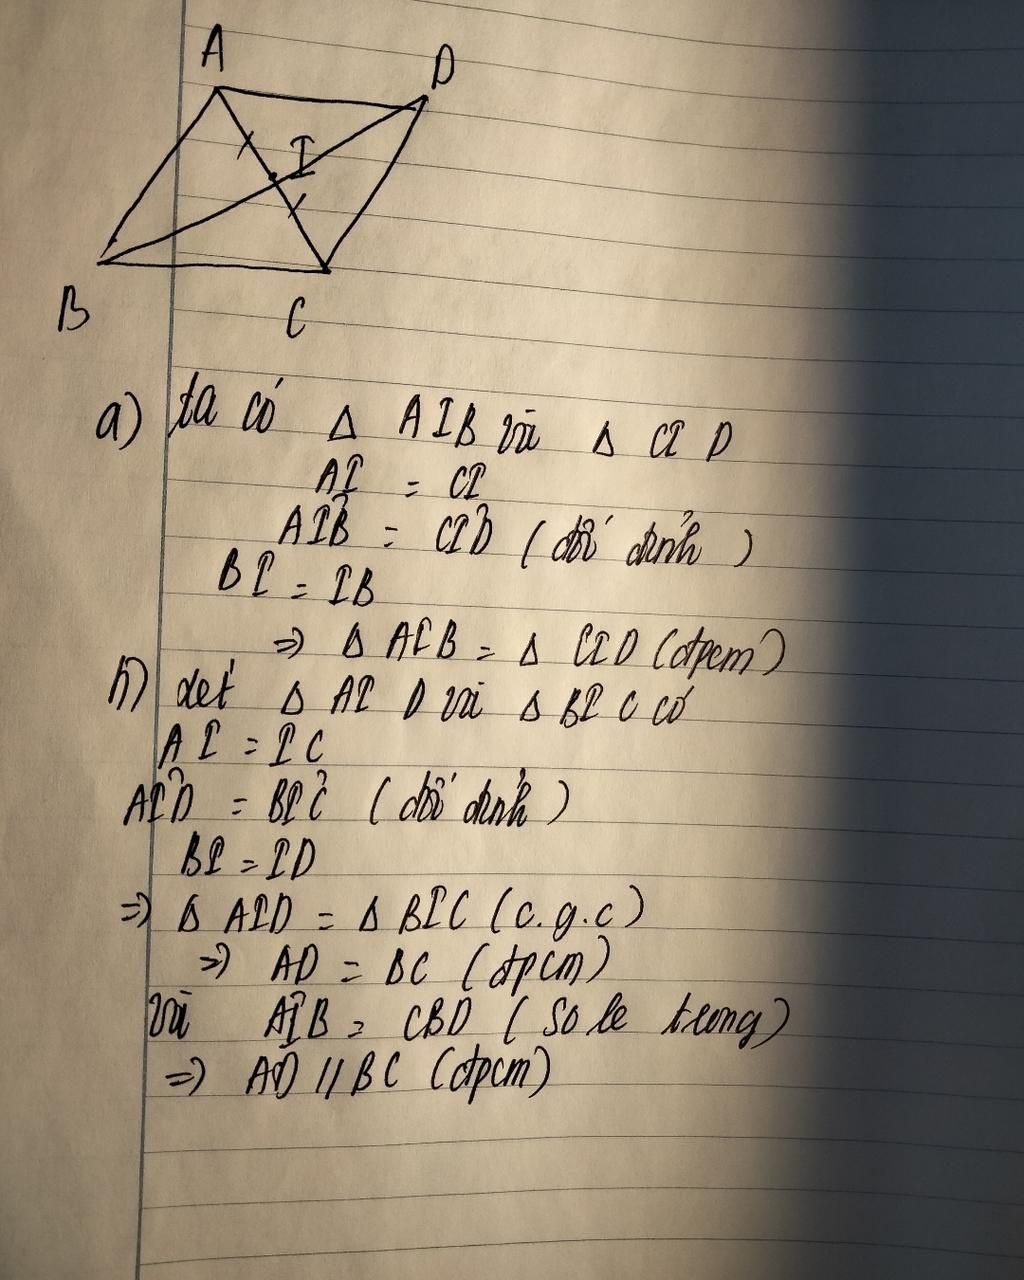 A
D
I
B
C
a) ta có Δ AIB và Δ CI D
AI = CI
AIB̂ = CID̂ (đối đỉnh)
BI = IB
=> Δ AIB = Δ CID (đpcm)
b) xét Δ AI D và Δ BI C có
A I = I C
AID̂ = BIĈ (đối đỉnh)
BI = ID
=> Δ AID = Δ BIC (c.g.c)
=> AD = BC (đpcm)
và AÎB = CBD (so le trong)
=> AD // BC (đpcm)